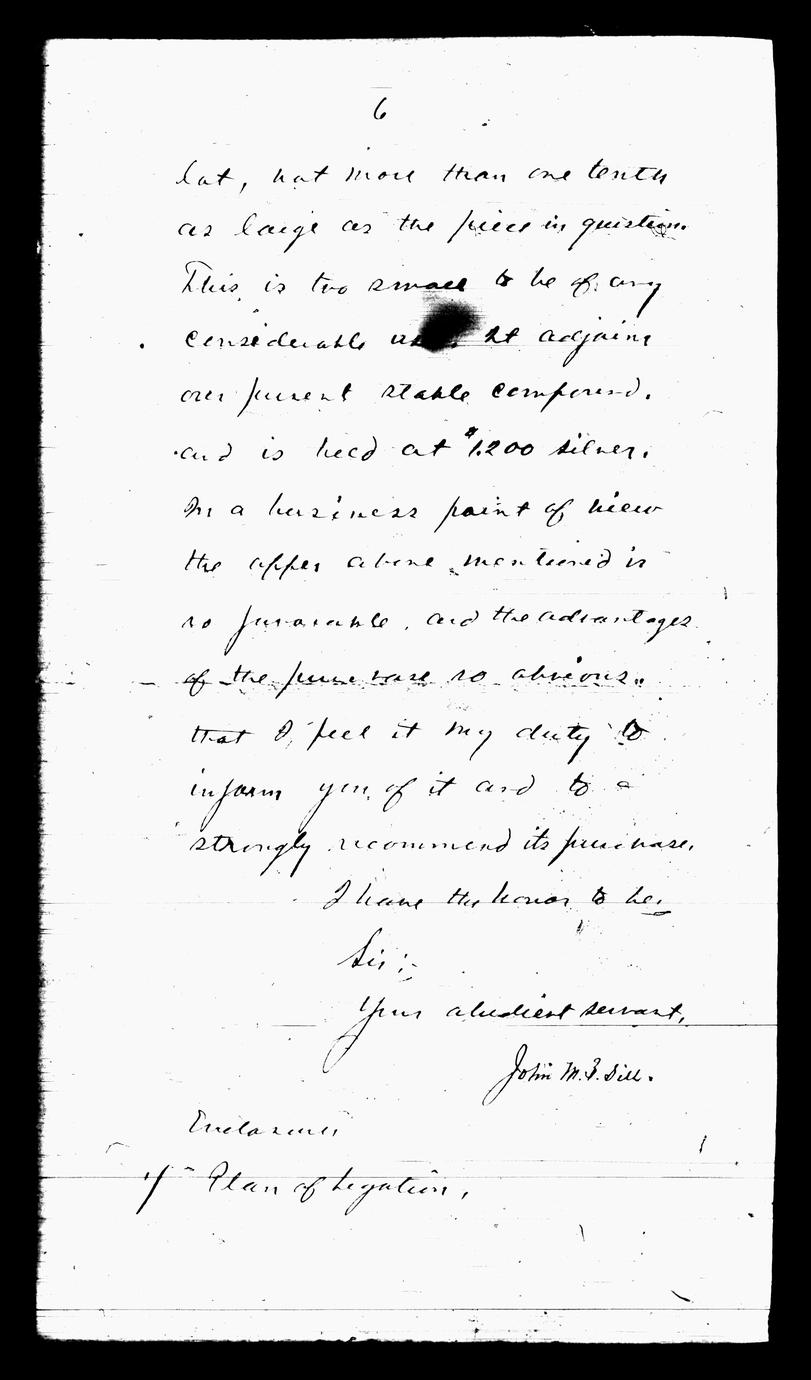 6
lot, not more than one tenth
as large as the piece in question.
This is too small to be of any
considerable use. It adjoins
our present stable compound.
and is held at $1.200 silver.
In a business point of view
the offer above mentioned is
so favorable, and the advantages
of the purchase so obvious,
that I feel it my duty to
inform you of it and to
strongly recommend its purchase.
I have the honor to be,
Sir:-
Your obedient servant,
John M. B. Sill.
Enclosures
1/ Plan of Legation.